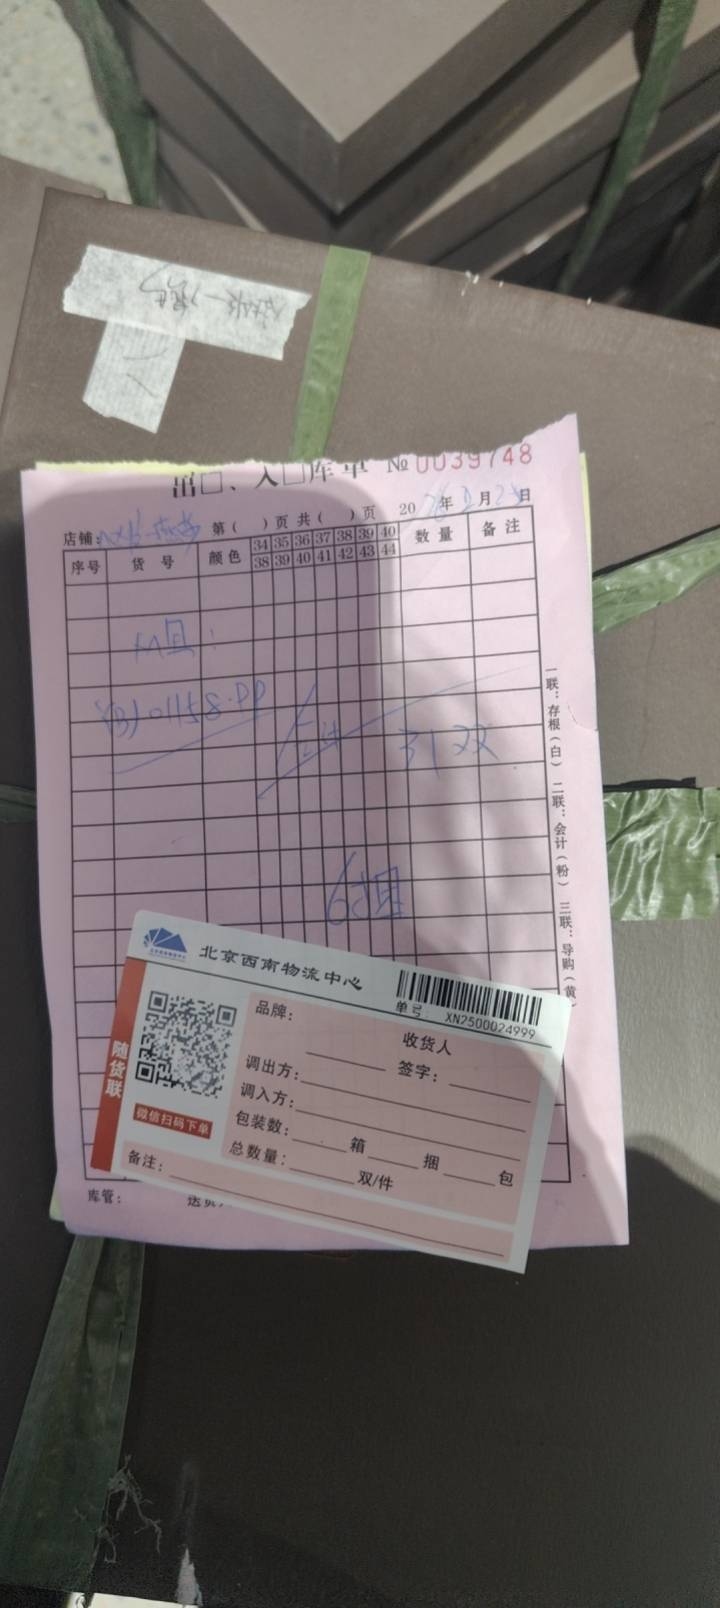 出□、入□库单 № 0039748
店铺: 第( )页 共( )页 20 年 月 日
序号 货号 颜色 34 35 36 37 38 39 40 数量 备注
38 39 40 41 42 43 44
YBJ01158.PP
合计 31双
6捆
一联：存根（白） 二联：会计（粉） 三联：导购（黄）
北京西南物流中心
单号: XN2500024999
随货联
微信扫码下单
品牌:
收货人
签字:
调出方:
调入方:
包装数: 箱 捆 包
总数量: 双/件
备注:
库管: